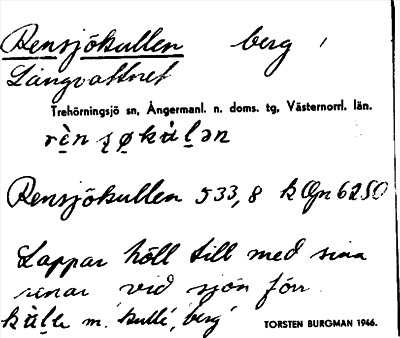 Rensjökullen berg i
Långvattnet
Trehörningsjö sn, Ångermanl. n. doms. tg, Västernorrl. län.
Rensjökullen 533,8 k Öpn 6250
Lappar höll till med sina
renar vid sjön förr
m. 'kulle, berg'
TORSTEN BURGMAN 1946.